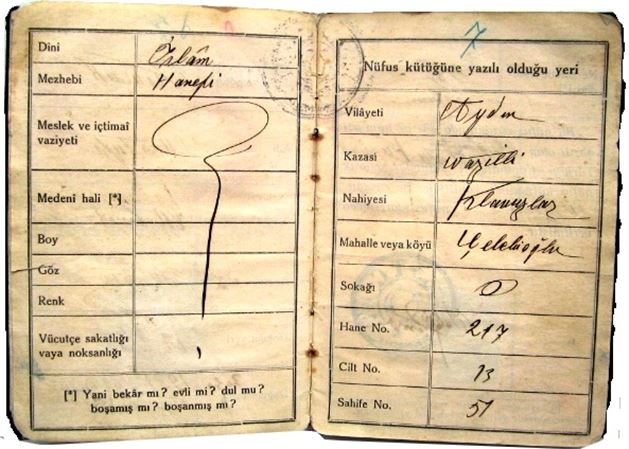 Dini İslâm
Mezhebi Hanefi
Meslek ve içtimaî
vaziyeti
Medenî hali [*]
Boy
Göz
Renk
Vücutçe sakatlığı
vaya noksanlığı
[*] Yani bekâr mı? evli mi? dul mu?
boşamış mı? boşanmış mı?
7
Nüfus kütüğüne yazılı olduğu yeri
Vilâyeti Aydın
Kazasi Nazilli
Nahiyesi
Mahalle veya köyü Çelebioğlu
Sokağı 0
Hane No. 217
Cilt No. 13
Sahife No. 51